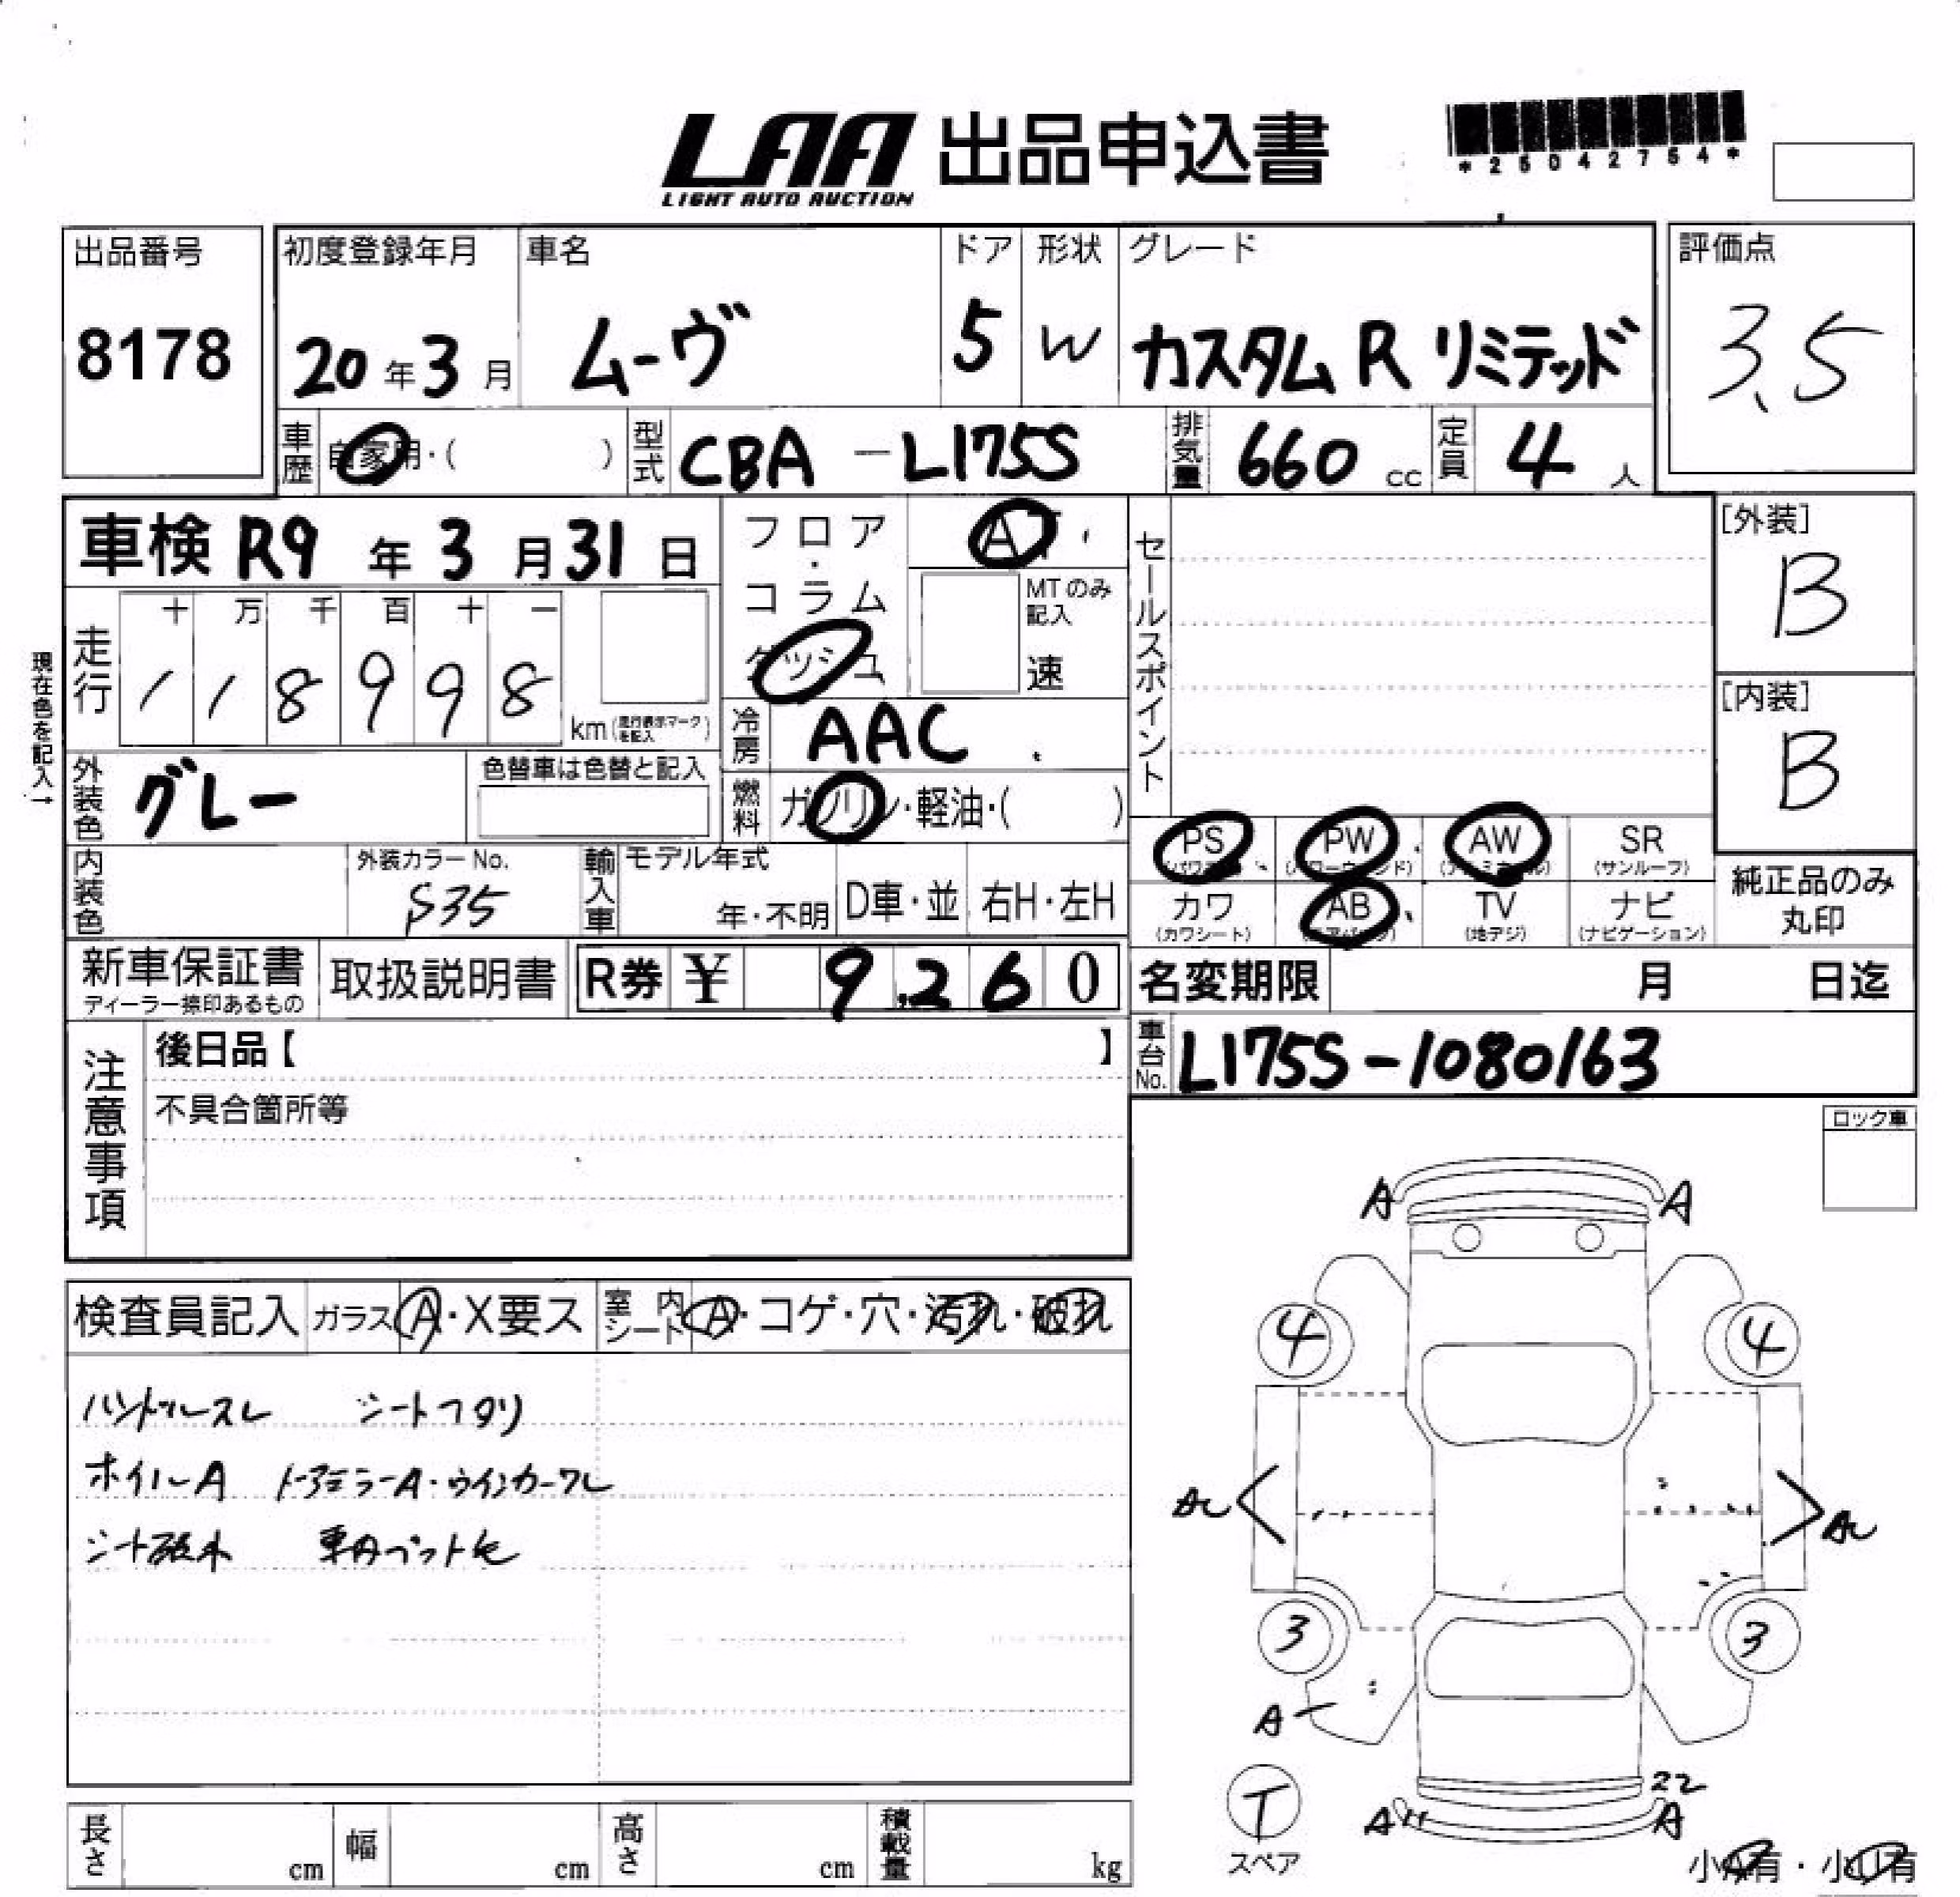 LAA 出品申込書
LIGHT AUTO AUCTION
*25042754*
出品番号
8178
初度登録年月
20年3月
車名
ムーヴ
ドア
5
形状
W
グレード
カスタム R リミテッド
評価点
3.5
車歴
自家用・( )
型式
CBA-L175S
排気量
660 cc
定員
4 人
車検 R9年3月31日
フロア・コラム
ダッシュ
AT
MTのみ記入
速
セールスポイント
[外装]
B
[内装]
B
現在色を記入→
走行
十 万 千 百 十 一
1 1 8 9 9 8
km(走行表示マークを記入)
冷房
AAC
外装色
グレー
色替車は色替と記入
燃料
ガソリン・軽油・( )
PS PW AW SR
(パワーウインド) (サンルーフ)
カワ AB TV ナビ
(カワシート) (エアバッグ) (地デジ) (ナビゲーション)
純正品のみ
丸印
内装色
外装カラーNo.
S35
輸入車
モデル年式
年・不明
D車・並
右H・左H
新車保証書
ディーラー捺印あるもの
取扱説明書
R券 ¥ 9,260
名変期限 月 日迄
車台No.
L175S-1080163
注意事項
後日品【 】
不具合箇所等
ロック車
検査員記入
ガラス A・X要ス
室内シート A・コゲ・穴・汚れ・破れ
ハンドルスレ シートヘタリ
ホイルA ドアミラーA・ウインカーワレ
車内ペット毛
A A
4 4
3 3
A
T
スペア
22
A A
小A有・小U有
長さ cm
幅 cm
高さ cm
積載量 kg